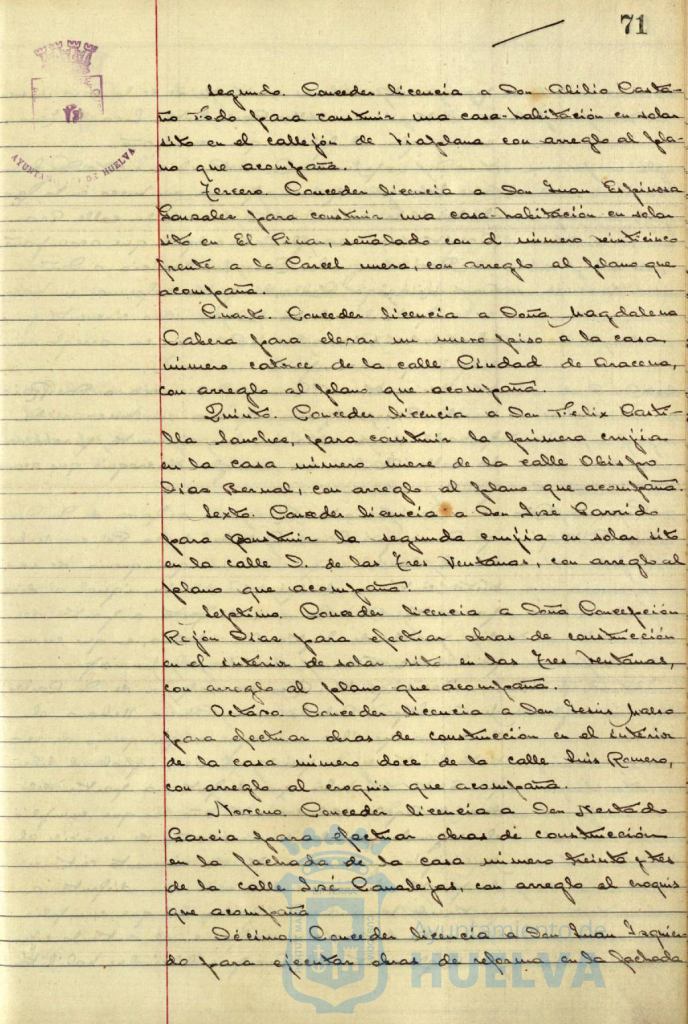 71
AYUNTAMIENTO DE HUELVA
Segundo. Conceder licencia a Don Abilio Casta-
ño Todo para construir una casa-habitación en solar
sito en el callejón de Viaplana con arreglo al pla-
no que acompaña.
Tercero. Conceder licencia a Don Juan Espinosa
Gonzalez para construir una casa-habitación en solar
sito en El Pinar, señalado con el número veinticinco
frente a la Carcel nueva, con arreglo al plano que
acompaña.
Cuarto. Conceder licencia a Doña Magdalena
Cabera para elevar un nuevo piso a la casa
número catorce de la calle Ciudad de Aracena,
con arreglo al plano que acompaña.
Quinto. Conceder licencia a Don Felix Casti-
lla Sanchez, para construir la primera crujia
en la casa número nueve de la calle Obispo
Dias Bernal, con arreglo al plano que acompaña.
Sexto. Conceder licencia a Don José Garrido
para construir la segunda crujia en solar sito
en la calle D. de las Tres Ventanas, con arreglo al
plano que acompaña.
Septimo. Conceder licencia a Doña Concepción
Rejón Dias para efectuar obras de construcción
en el interior de solar sito en las Tres Ventanas,
con arreglo al plano que acompaña.
Octavo. Conceder licencia a Don Jesus
para efectuar obras de construcción en el interior
de la casa número doce de la calle Luis Romero,
con arreglo al croquis que acompaña.
Noveno. Conceder licencia a Don
Garcia para efectuar obras de construcción
en la fachada de la casa número treinta y tres
de la calle José Canalejas, con arreglo al croquis
que acompaña
Décimo. Conceder licencia a Don Juan Izquier-
do para ejecutar obras de reforma en la fachada
Ayuntamiento de
HUELVA